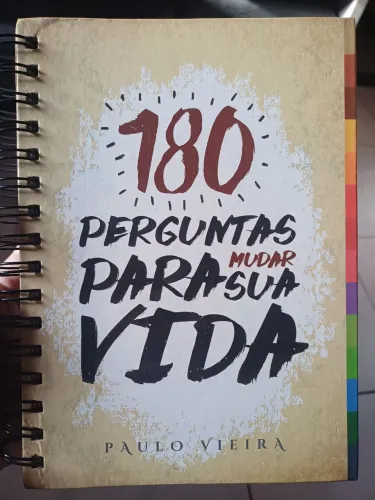 180
PERGUNTAS
PARA MUDAR SUA
VIDA
PAULO VIEIRA